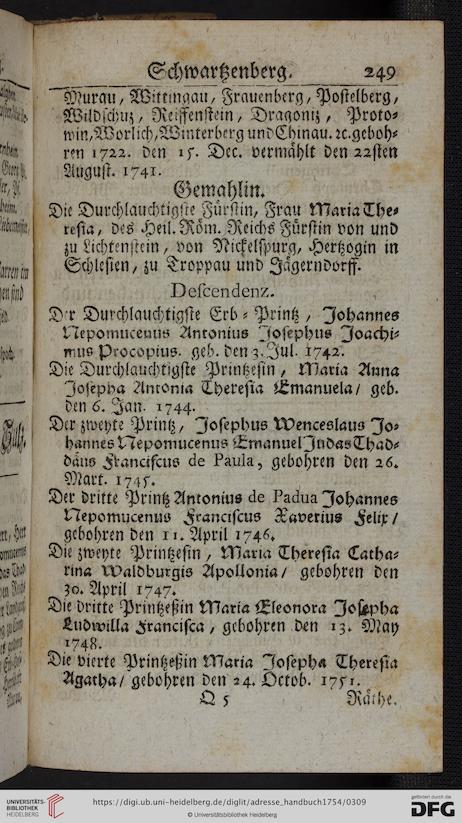 Schwartzenberg. 249
Murau, Wittingau, Frauenberg, Postelberg,
Wildschuz, Reiffenstein, Dragoniz, Proto-
win, Worlich, Winterberg und Chinau. ꝛc. geboh-
ren 1722. den 15. Dec. vermählt den 22sten
August. 1741.
Gemahlin.
Die Durchlauchtigste Fürstin, Frau Maria The-
resia, des Heil. Röm. Reichs Fürstin von und
zu Lichtenstein, von Nickelspurg, Hertzogin in
Schlesien, zu Troppau und Jägerndorff.
Descendenz.
Der Durchlauchtigste Erb-Printz, Johannes
Nepomucenus Antonius Josephus Joachi-
mus Procopius. geb. den 3. Jul. 1742.
Die Durchlauchtigste Printzesin, Maria Anna
Josepha Antonia Theresia Emanuela/ geb.
den 6. Jan. 1744.
Der zweyte Printz, Josephus Wenceslaus Jo-
hannes Nepomucenus Emanuel Judas Thad-
däus Franciscus de Paula, gebohren den 26.
Mart. 1745.
Der dritte Printz Antonius de Padua Johannes
Nepomucenus Franciscus Xaverius Felix/
gebohren den 11. April 1746.
Die zweyte Printzesin, Maria Theresia Catha-
rina Waldburgis Apollonia/ gebohren den
30. April 1747.
Die dritte Printzeßin Maria Eleonora Josepha
Ludwilla Francisca, gebohren den 13. May
1748.
Die vierte Printzeßin Maria Josepha Theresia
Agatha/ gebohren den 24. Octob. 1751.
Q 5 Räthe.
UNIVERSITÄTS-
BIBLIOTHEK
HEIDELBERG
https://digi.ub.uni-heidelberg.de/diglit/adresse_handbuch1754/0309
© Universitätsbibliothek Heidelberg
gefördert durch die
DFG